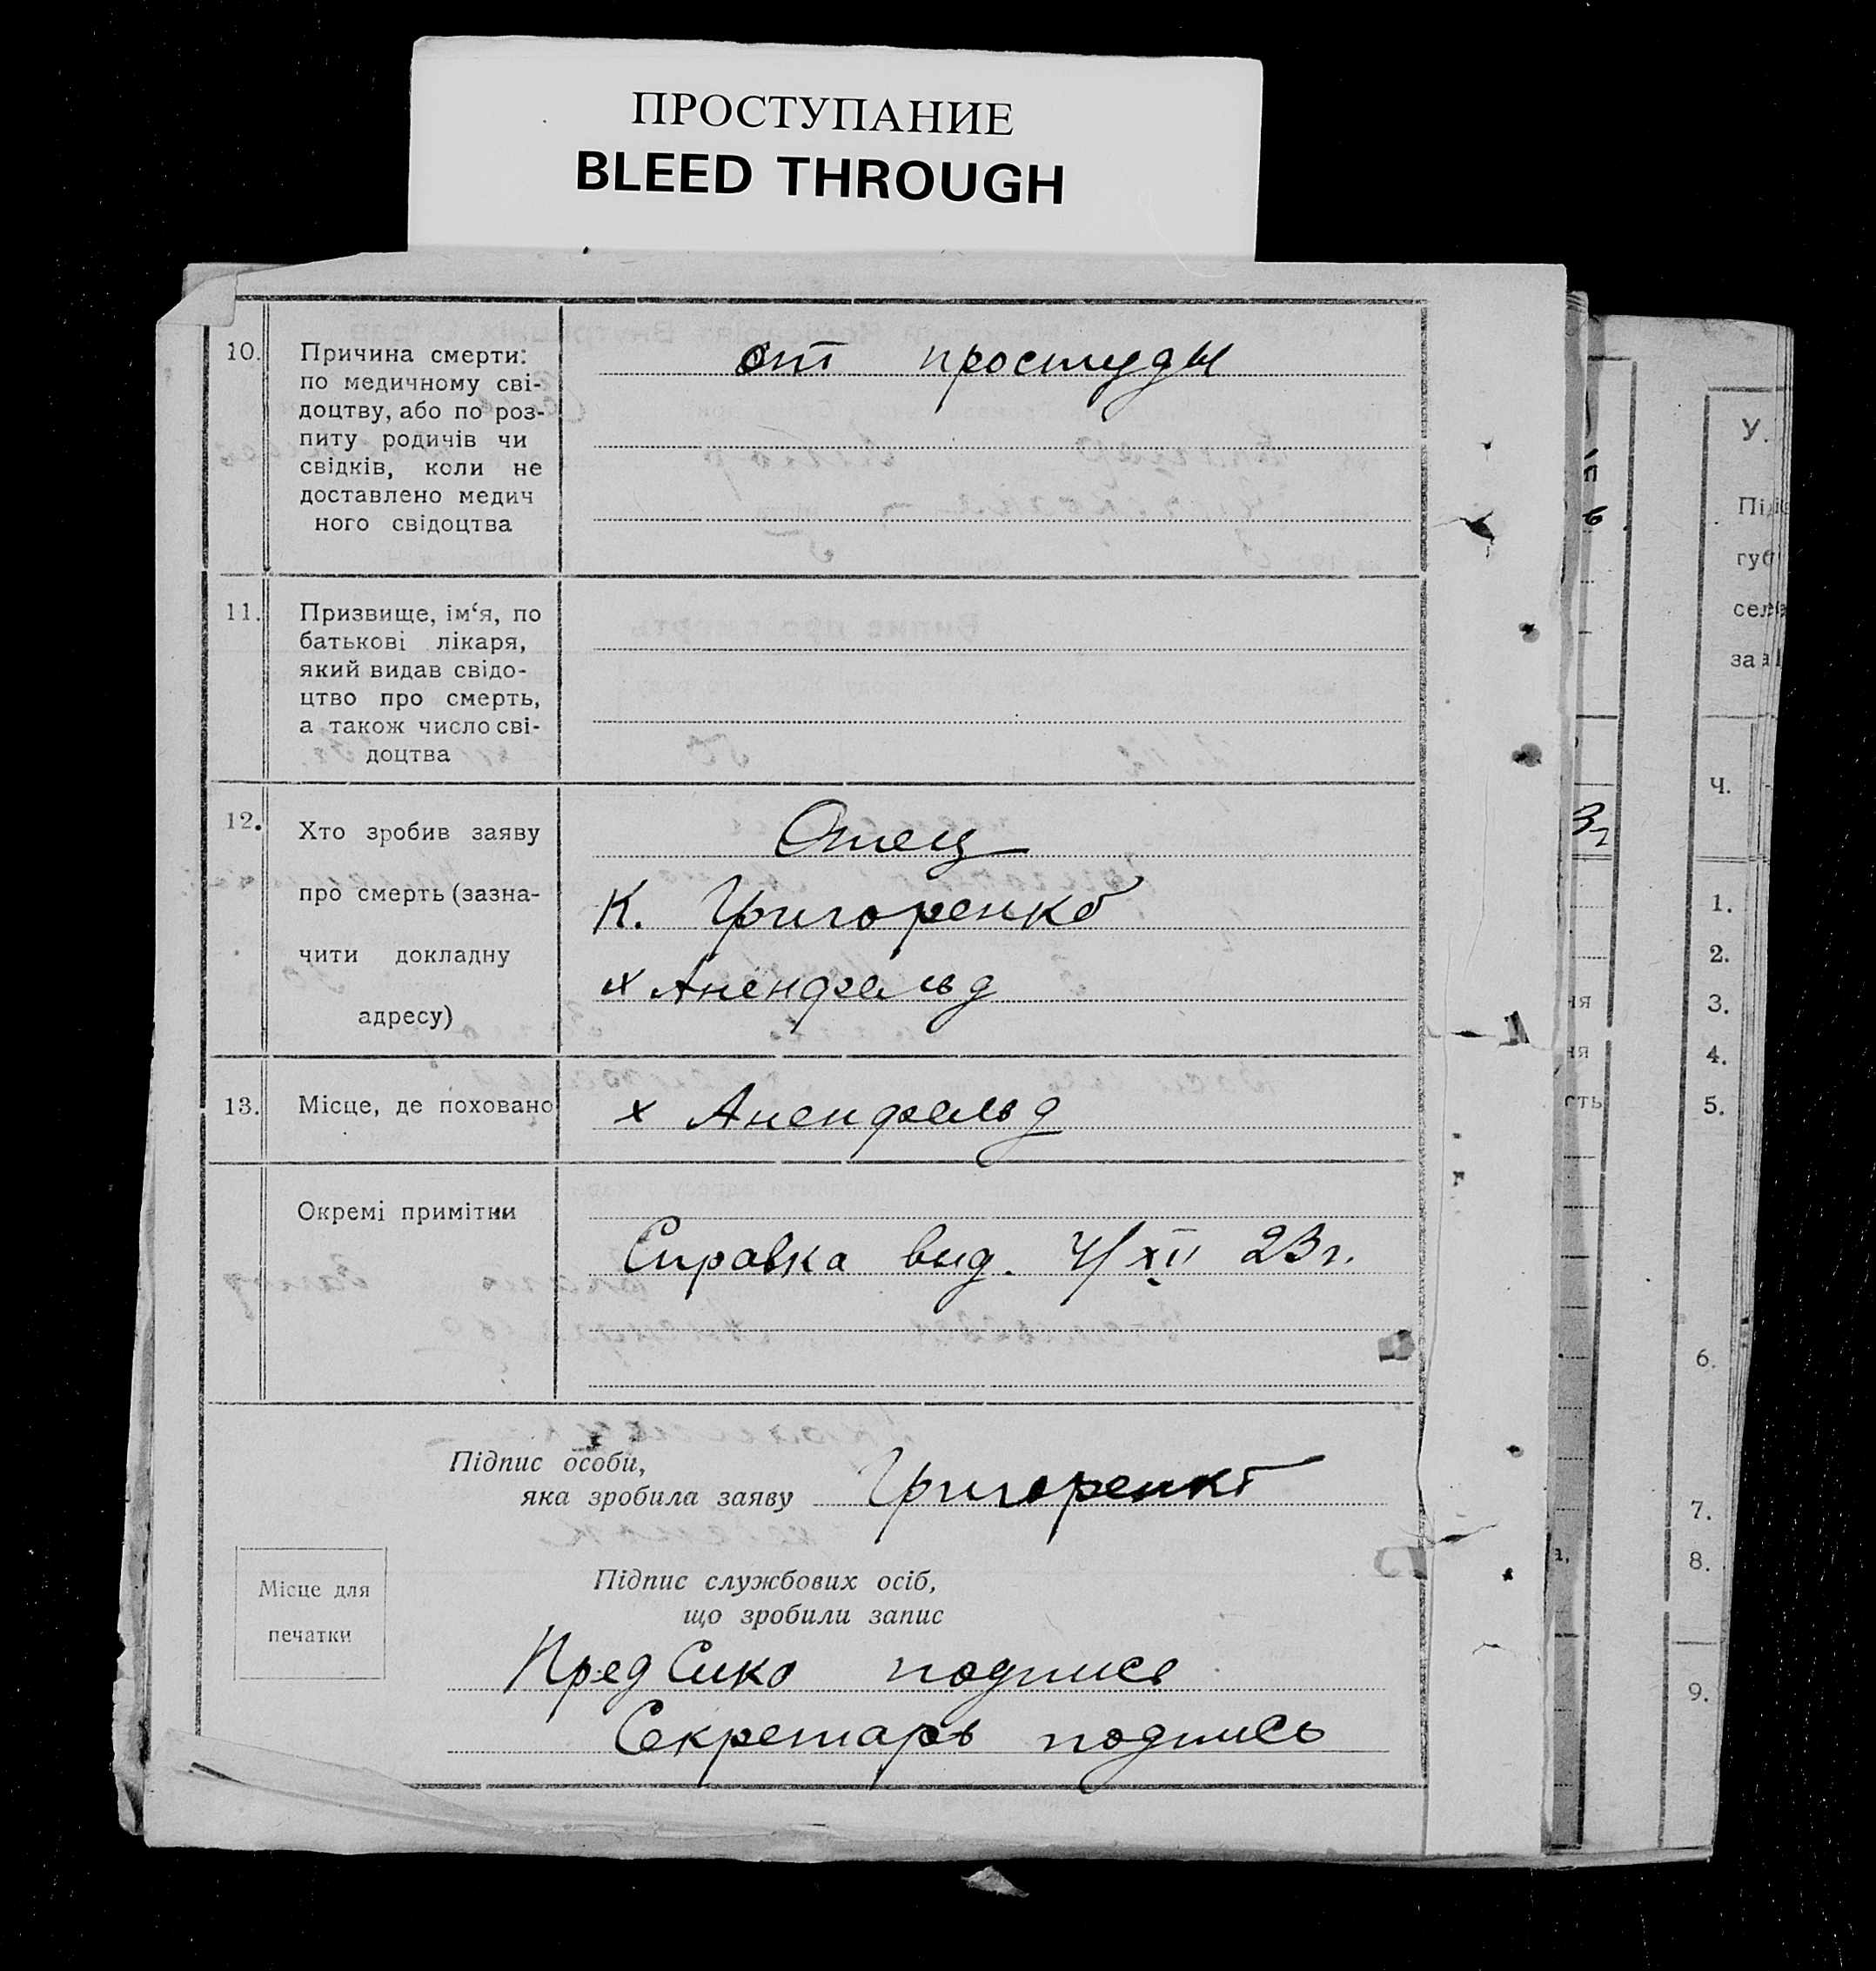 ПРОСТУПАНИЕ
BLEED THROUGH
10. Причина смерти:
по медичному сві-
доцтву, або по роз-
питу родичів чи
свідків, коли не
доставлено медич
ного свідоцтва
от простуды
11. Призвище, ім‘я, по
батькові лікаря,
який видав свідо-
цтво про смерть,
а також число сві-
доцтва
12. Хто зробив заяву
про смерть (зазна-
чити докладну
адресу)
Отец
К. Григоренко
х Аненфельд
13. Місце, де поховано
х Аненфельд
Окремі примітки
Справка выд. 4/XII 23 г.
Підпис особи,
яка зробила заяву Григоренко
Місце для
печатки
Підпис службових осіб,
що зробили запис
Пред Сико подпись
Секретарь подпись
У.
Під
губ
сел
за
Ч.
1.
2.
3.
4.
5.
6.
7.
8.
9.